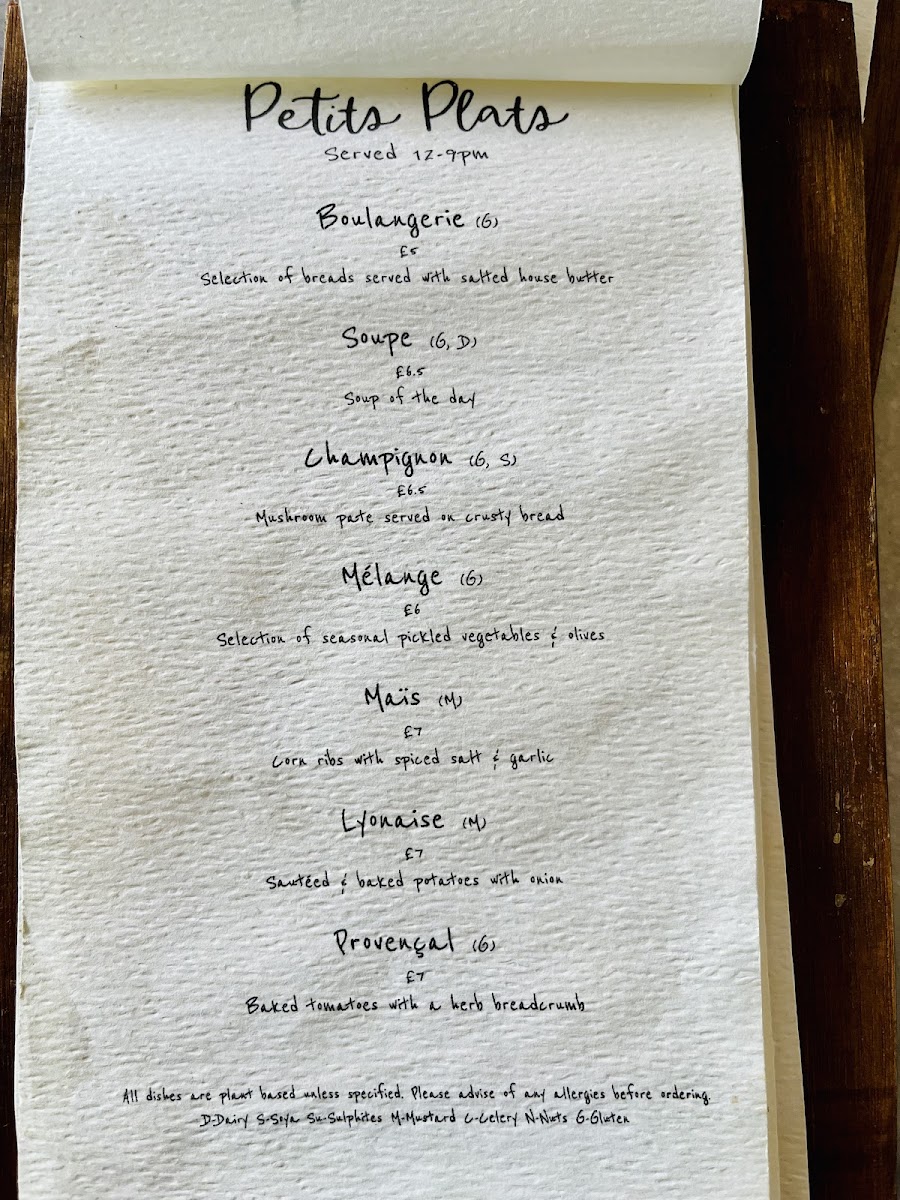 Petits Plats
Served 12-9pm
Boulangerie (G)
£5
Selection of breads served with salted house butter
Soupe (G, D)
£6.5
Soup of the day
Champignon (G, S)
£6.5
Mushroom pate served on crusty bread
Mélange (G)
£6
Selection of seasonal pickled vegetables & olives
Maïs (M)
£7
Corn ribs with spiced salt & garlic
Lyonaise (M)
£7
Sautéed & baked potatoes with onion
Provençal (G)
£7
Baked tomatoes with a herb breadcrumb
All dishes are plant based unless specified. Please advise of any allergies before ordering.
D-Dairy S-Soya Su-Sulphites M-Mustard C-Celery N-Nuts G-Gluten